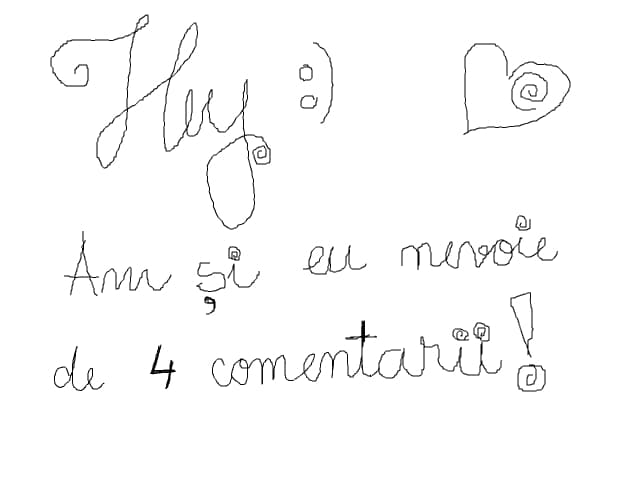 Hey :)
Am și eu nevoie
de 4 comentarii!